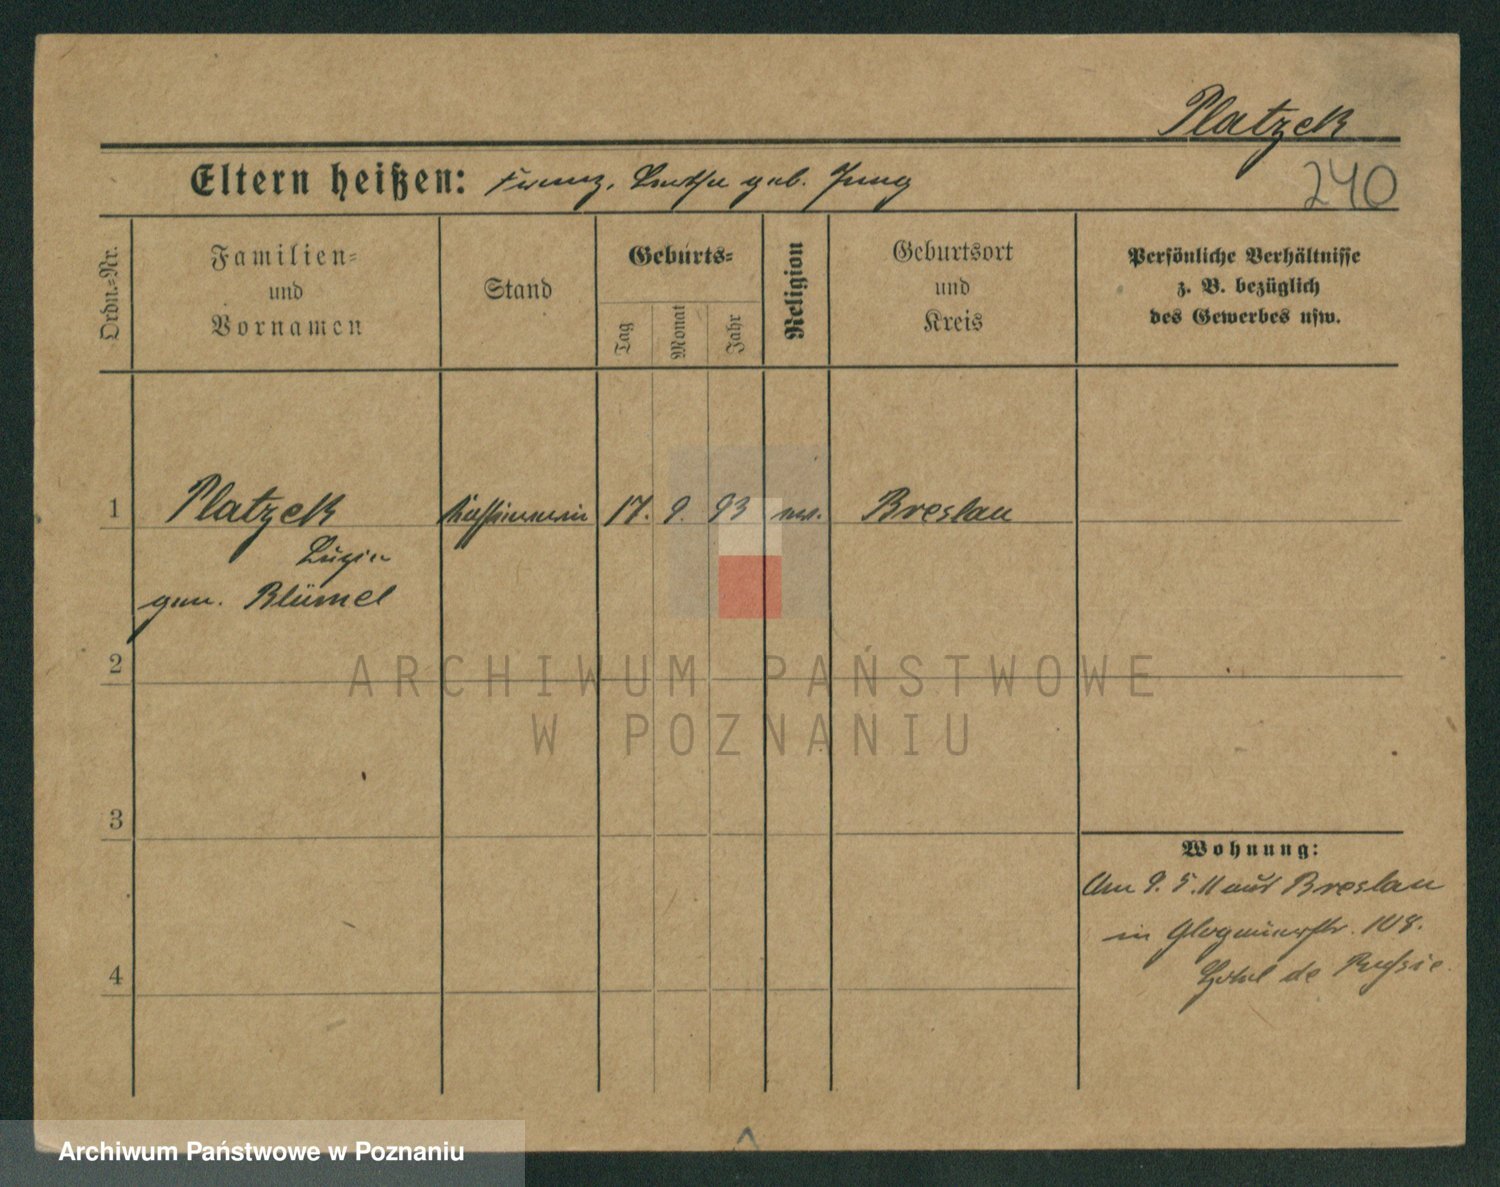 Platzek
Eltern heißen: Franz, Bertha geb. Jung
240
Ordn.-Nr.
Familien-
und
Vornamen
Stand
Geburts-
Tag
Monat
Jahr
Religion
Geburtsort
und
Kreis
Persönliche Verhältnisse
z. B. bezüglich
des Gewerbes usw.
1 Platzek 17. 9. 93 ev. Breslau
gen. Blümel
2
ARCHIWUM PAŃSTWOWE
W POZNANIU
3
Wohnung:
Am 9. 5. 11 aus Breslau
in Glogauerstr. 108.
4
Hotel de Russie
Archiwum Państwowe w Poznaniu